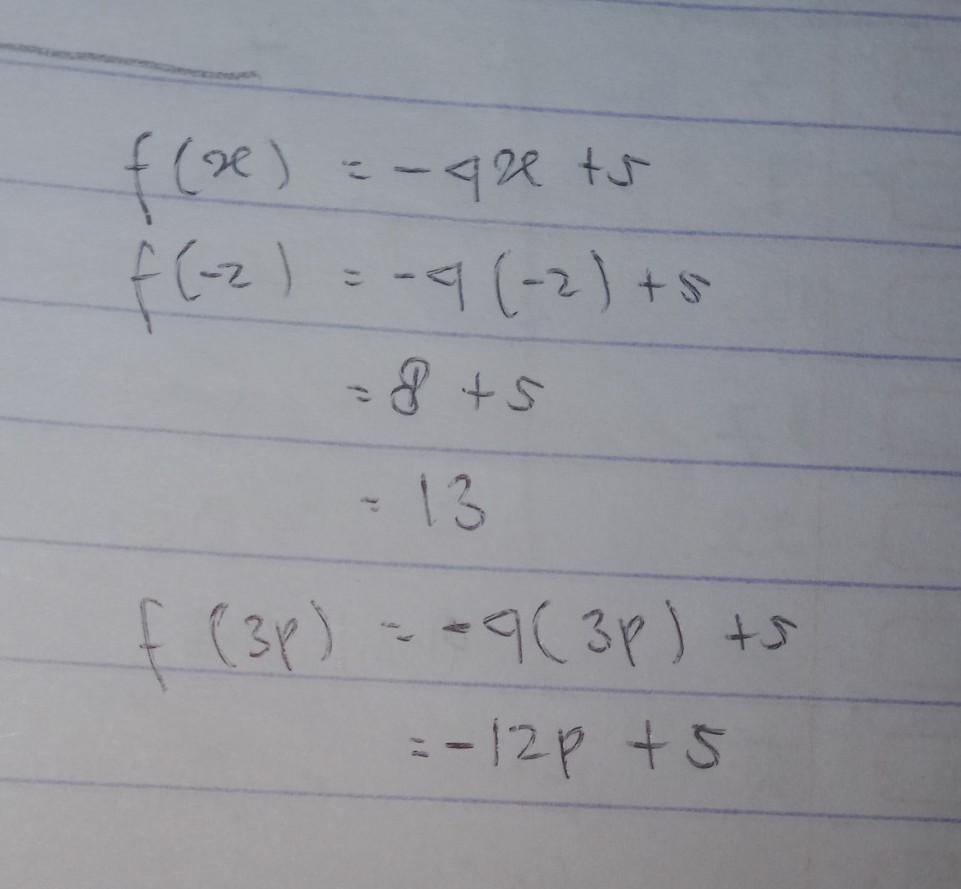 f(x) = -4x +5
f(-2) = -4(-2) +5
= 8 +5
= 13
f(3p) = -4(3p) +5
= -12p +5